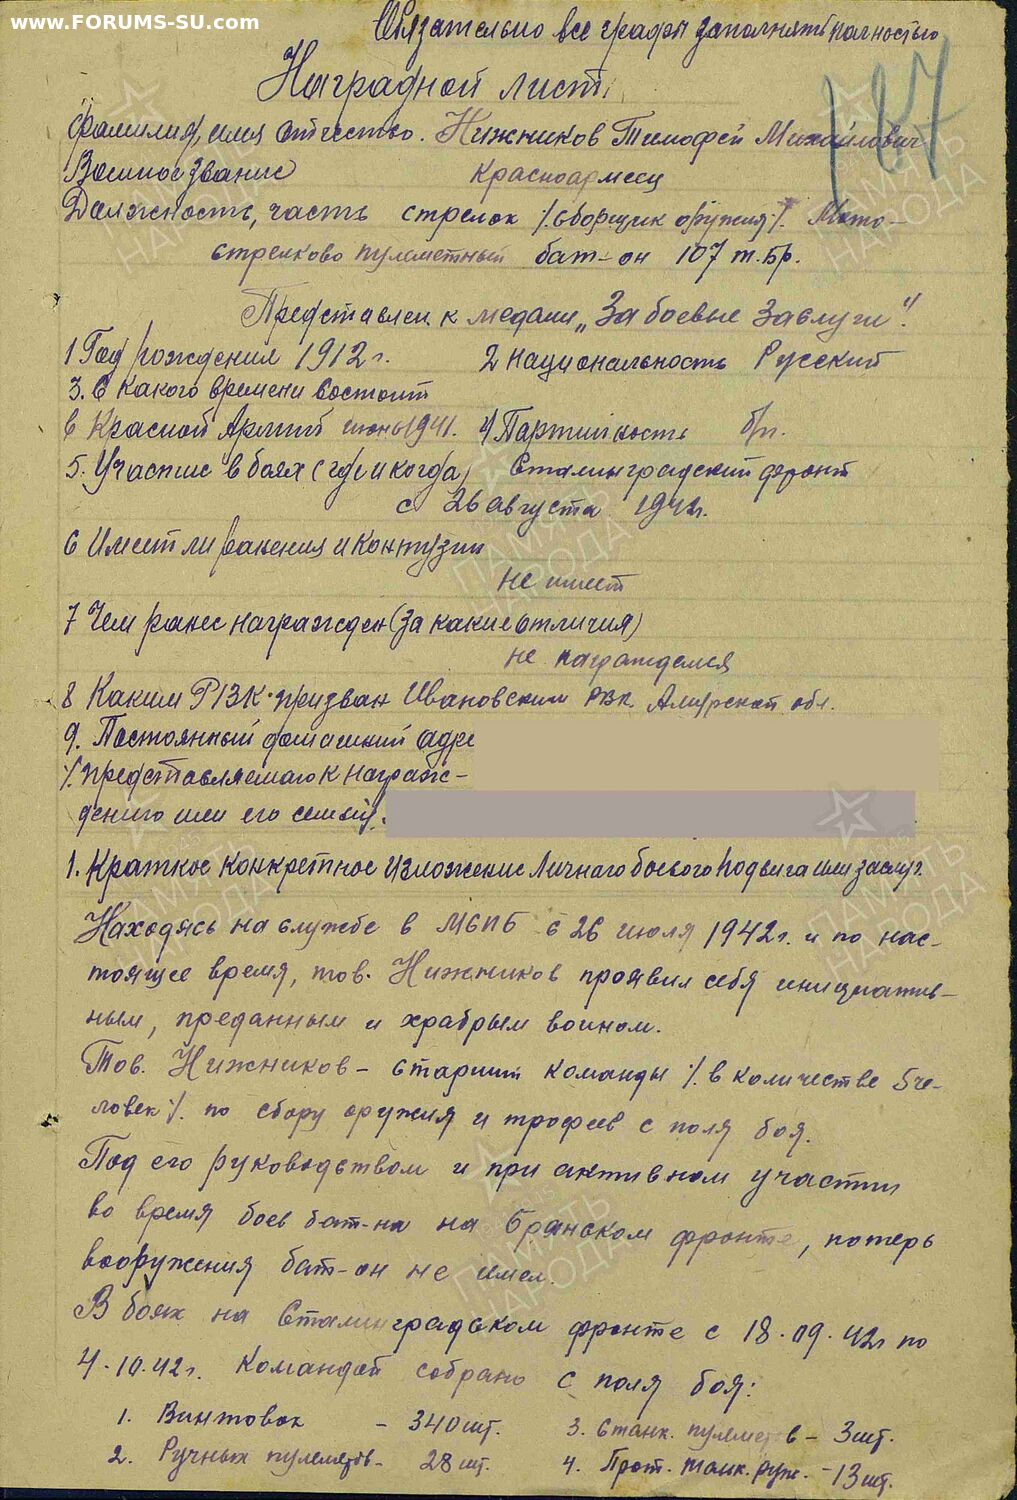 www.FORUMS-SU.com
Обязательно все графы заполнять полностью
127
Наградной лист
Фамилия, имя отчество. Нижников Тимофей Михайлович
Военное звание Красноармеец
Должность, часть стрелок /. сборщик оружия /. Мото-
стрелково пулеметный бат-он 107 т.бр.
Представлен к медали „За боевые заслуги".
1 Год рождения 1912 г. 2 национальность Русский
3. С какого времени состоит
в Красной Армии июнь 1941. 4 Партийность б/п.
5. Участие в боях (где и когда) Сталинградский фронт
с 26 августа 1942г.
6 Имеет ли ранения и контузии
не имеет
7 Чем ранее награжден (за какие отличия)
не награждался
8 Каким РВК призван Ивановским РВК Амурской обл.
9. Постоянный домашний адре
/. представляемаго к награж-
дению или его семьи /.
1. Краткое конкретное изложение личнаго боевого подвига или заслуг.
Находясь на службе в МСПБ с 26 июля 1942г. и по нас-
тоящее время, тов. Нижников проявил себя инициатив-
ным, преданным и храбрым воином.
Тов. Нижников - старший команды /. в количестве 5 че-
ловек /. по сбору оружия и трофеев с поля боя.
Под его руководством и при активном участии
во время боев бат-на на Брянском фронте, потерь
вооружения бат-он не имел.
В боях на Сталинградском фронте с 18.09.42г по
4.10.42г. командой собрано с поля боя:
1. Винтовок - 340 шт. 3. Станк. пулеметов - 3 шт.
2. Ручных пулеметов - 28 шт. 4. Прот. танк. руж. - 13 шт.
ПАМЯТЬ
НАРОДА